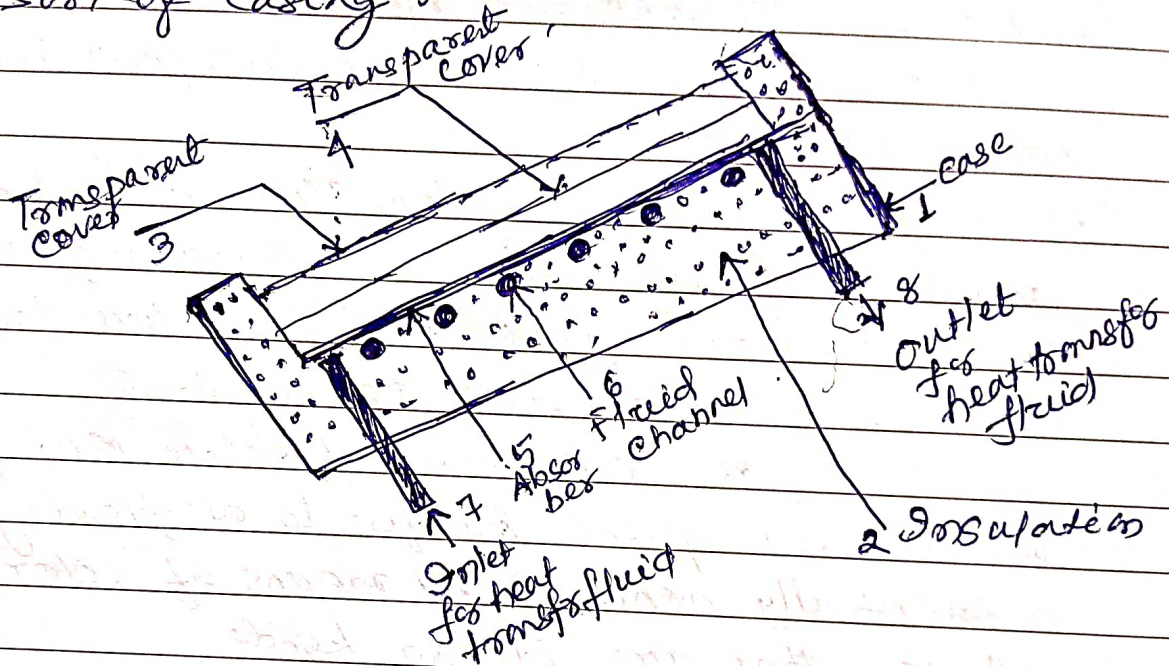 of casing
Transparent
cover
4
Transparent
cover
3
case
1
8
Outlet
for
heat transfer
fluid
6
Fluid
channel
5
Absor
ber
2 Insulation
7
Inlet
for heat
transfr fluid